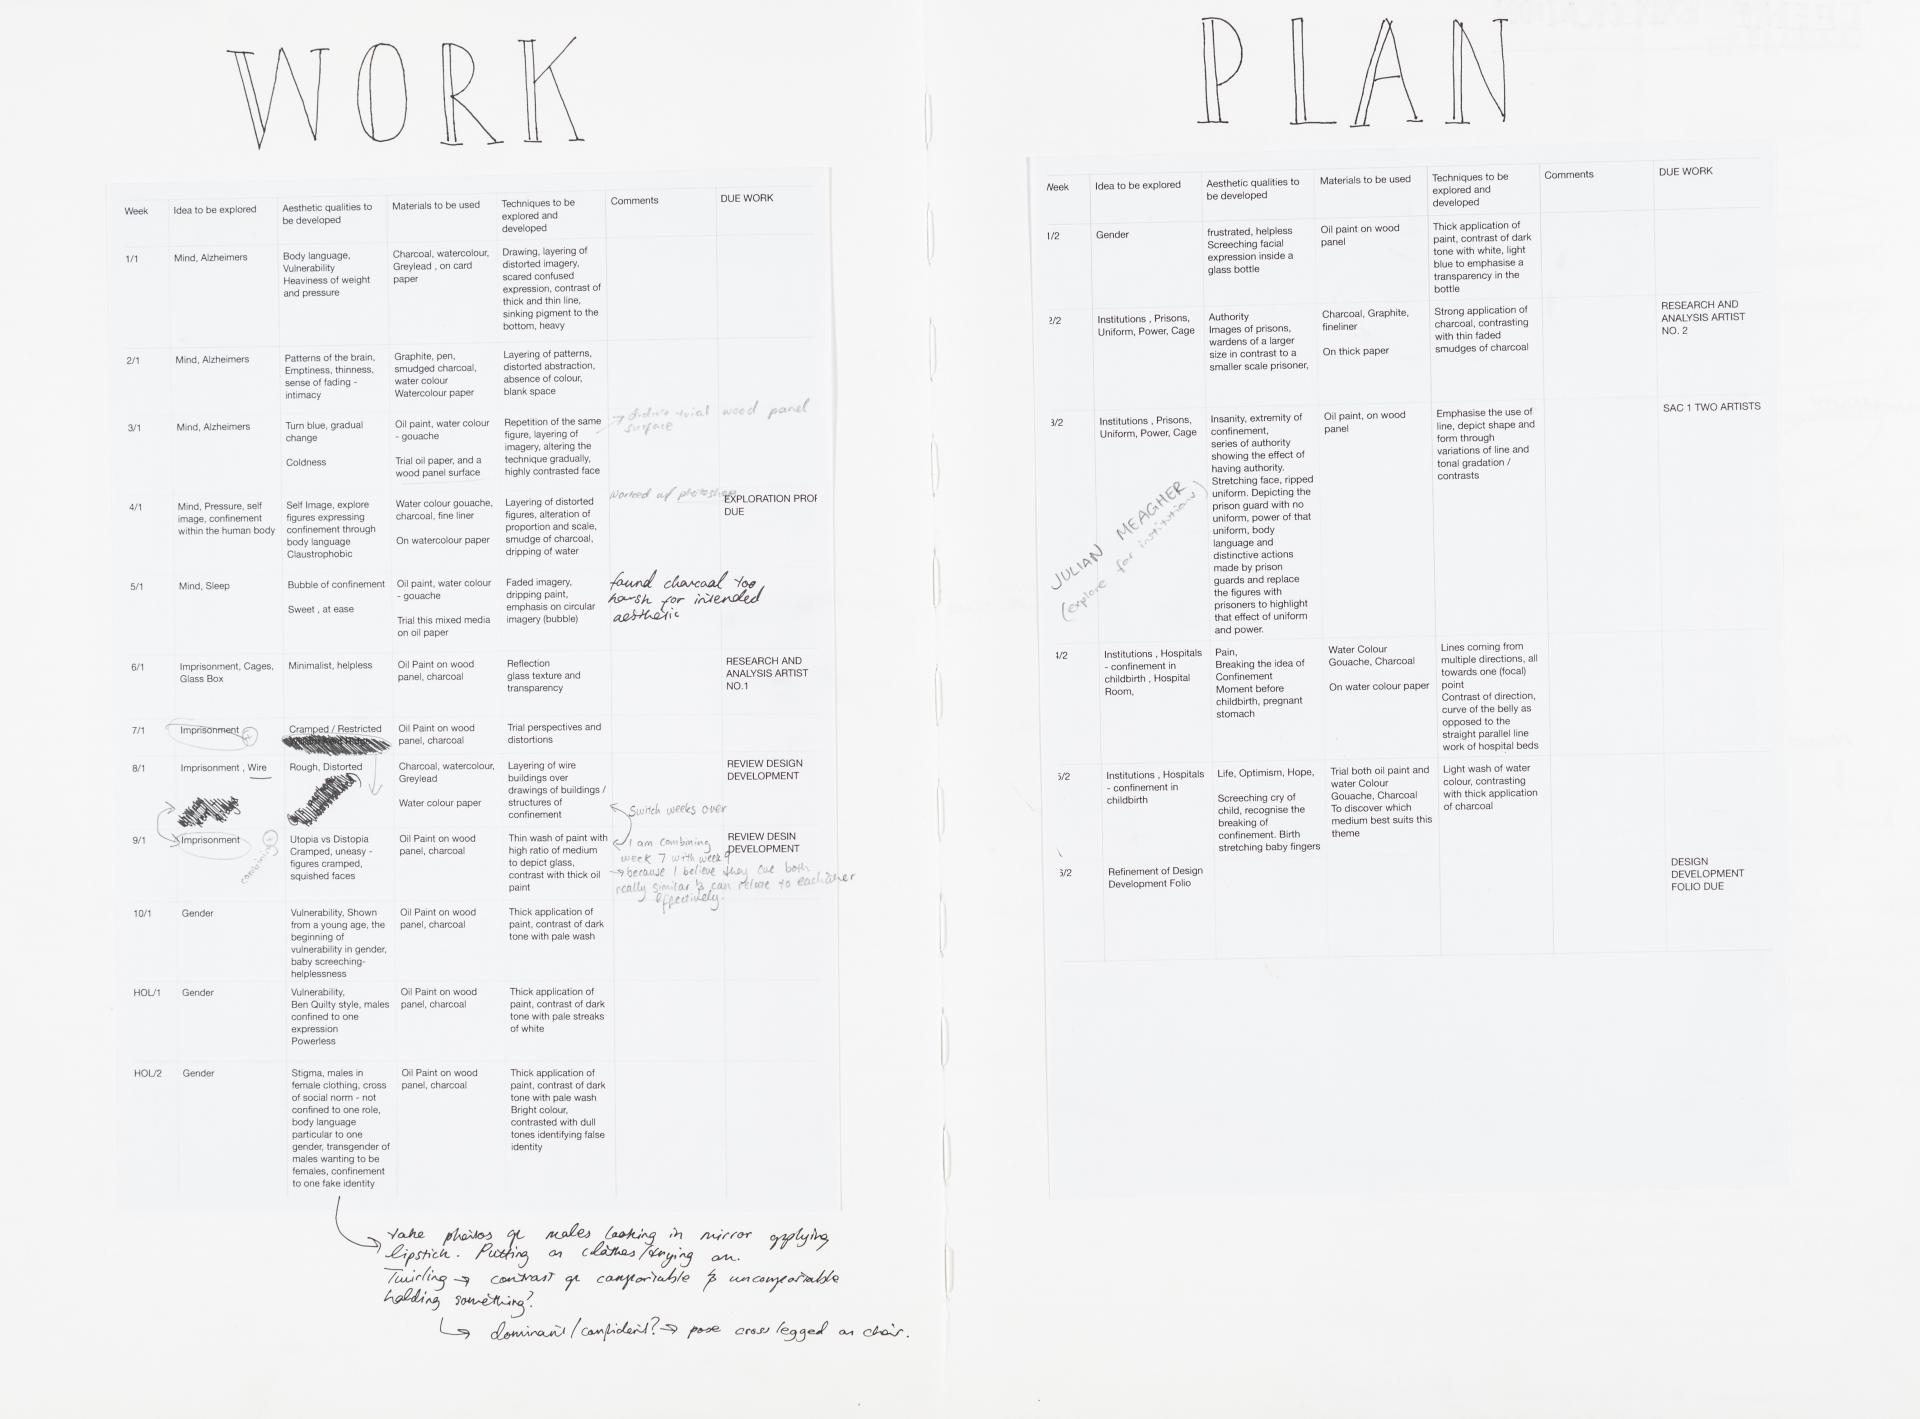 WORK
PLAN
Week
Idea to be explored
Aesthetic qualities to
be developed
Materials to be used
Techniques to be
explored and
developed
Comments
DUE WORK
1/1
Mind, Alzheimers
Body language,
Vulnerability
Heaviness of weight
and pressure
Charcoal, watercolour,
Greylead , on card
paper
Drawing, layering of
distorted imagery,
scared confused
expression, contrast of
thick and thin line,
sinking pigment to the
bottom, heavy
2/1
Mind, Alzheimers
Patterns of the brain,
Emptiness, thinness,
sense of fading -
intimacy
Graphite, pen,
smudged charcoal,
water colour
Watercolour paper
Layering of patterns,
distorted abstraction,
absence of colour,
blank space
3/1
Mind, Alzheimers
Turn blue, gradual
change
Coldness
Oil paint, water colour
- gouache
Trial oil paper, and a
wood panel surface
Repetition of the same
figure, layering of
imagery, altering the
technique gradually,
highly contrasted face
→ didn't trial wood panel
surface
4/1
Mind, Pressure, self
image, confinement
within the human body
Self Image, explore
figures expressing
confinement through
body language
Claustrophobic
Water colour gouache,
charcoal, fine liner
On watercolour paper
Layering of distorted
figures, alteration of
proportion and scale,
smudge of charcoal,
dripping of water
worked w/ photoshop
EXPLORATION PROP
DUE
5/1
Mind, Sleep
Bubble of confinement
Sweet , at ease
Oil paint, water colour
- gouache
Trial this mixed media
on oil paper
Faded imagery,
dripping paint,
emphasis on circular
imagery (bubble)
found charcoal too
harsh for intended
aesthetic
6/1
Imprisonment, Cages,
Glass Box
Minimalist, helpless
Oil Paint on wood
panel, charcoal
Reflection
glass texture and
transparency
RESEARCH AND
ANALYSIS ARTIST
NO.1
7/1
Imprisonment
Cramped / Restricted
Oil Paint on wood
panel, charcoal
Trial perspectives and
distortions
8/1
Imprisonment , Wire
Rough, Distorted
Charcoal, watercolour,
Greylead
Water colour paper
Layering of wire
buildings over
drawings of buildings /
structures of
confinement
REVIEW DESIGN
DEVELOPMENT
Switch weeks over
9/1
Imprisonment
combining
Utopia vs Distopia
Cramped, uneasy -
figures cramped,
squished faces
Oil Paint on wood
panel, charcoal
Thin wash of paint with
high ratio of medium
to depict glass,
contrast with thick oil
paint
I am combining
week 7 with week 9
→ because I believe they are both
really similar & can relate to eachother
effectively.
REVIEW DESIN
DEVELOPMENT
10/1
Gender
Vulnerability, Shown
from a young age, the
beginning of
vulnerability in gender,
baby screeching-
helplessness
Oil Paint on wood
panel, charcoal
Thick application of
paint, contrast of dark
tone with pale wash
HOL/1
Gender
Vulnerability,
Ben Quilty style, males
confined to one
expression
Powerless
Oil Paint on wood
panel, charcoal
Thick application of
paint, contrast of dark
tone with pale streaks
of white
HOL/2
Gender
Stigma, males in
female clothing, cross
of social norm - not
confined to one role,
body language
particular to one
gender, transgender of
males wanting to be
females, confinement
to one fake identity
Oil Paint on wood
panel, charcoal
Thick application of
paint, contrast of dark
tone with pale wash
Bright colour,
contrasted with dull
tones identifying false
identity
take photos of males looking in mirror applying
lipstick. Putting on clothes/trying on.
Twirling → contrast of comfortable & uncomfortable
holding something?
dominant/confident? → pose cross legged on chair.
Week
Idea to be explored
Aesthetic qualities to
be developed
Materials to be used
Techniques to be
explored and
developed
Comments
DUE WORK
1/2
Gender
frustrated, helpless
Screeching facial
expression inside a
glass bottle
Oil paint on wood
panel
Thick application of
paint, contrast of dark
tone with white, light
blue to emphasise a
transparency in the
bottle
2/2
Institutions , Prisons,
Uniform, Power, Cage
Authority
Images of prisons,
wardens of a larger
size in contrast to a
smaller scale prisoner,
Charcoal, Graphite,
fineliner
On thick paper
Strong application of
charcoal, contrasting
with thin faded
smudges of charcoal
RESEARCH AND
ANALYSIS ARTIST
NO. 2
3/2
Institutions , Prisons,
Uniform, Power, Cage
JULIAN MEAGHER
(explore for institutions)
Insanity, extremity of
confinement,
series of authority
showing the effect of
having authority.
Stretching face, ripped
uniform. Depicting the
prison guard with no
uniform, power of that
uniform, body
language and
distinctive actions
made by prison
guards and replace
the figures with
prisoners to highlight
that effect of uniform
and power.
Oil paint, on wood
panel
Emphasise the use of
line, depict shape and
form through
variations of line and
tonal gradation /
contrasts
SAC 1 TWO ARTISTS
4/2
Institutions , Hospitals
- confinement in
childbirth , Hospital
Room,
Pain,
Breaking the idea of
Confinement
Moment before
childbirth, pregnant
stomach
Water Colour
Gouache, Charcoal
On water colour paper
Lines coming from
multiple directions, all
towards one (focal)
point
Contrast of direction,
curve of the belly as
opposed to the
straight parallel line
work of hospital beds
5/2
Institutions , Hospitals
- confinement in
childbirth
Life, Optimism, Hope,
Screeching cry of
child, recognise the
breaking of
confinement. Birth
stretching baby fingers
Trial both oil paint and
water Colour
Gouache, Charcoal
To discover which
medium best suits this
theme
Light wash of water
colour, contrasting
with thick application
of charcoal
6/2
Refinement of Design
Development Folio
DESIGN
DEVELOPMENT
FOLIO DUE